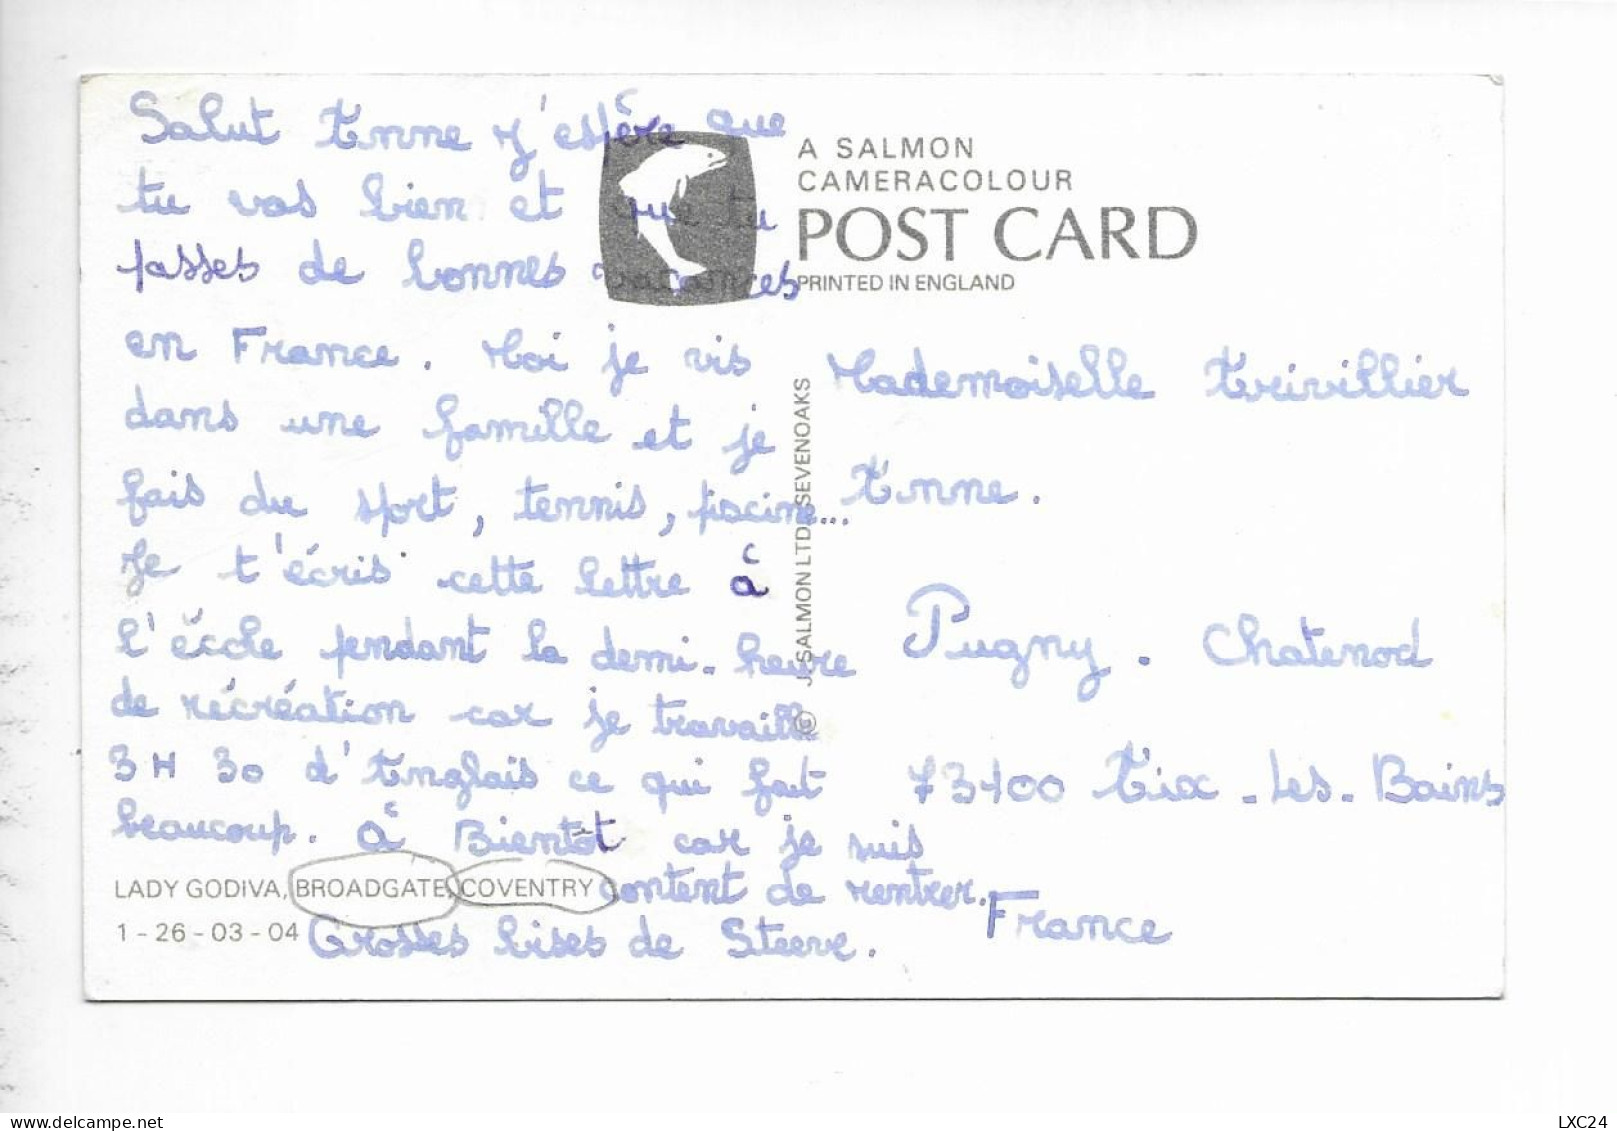 Salut Anne j'espère que
tu vas bien et que tu
passes de bonnes vacances
en France. Moi je vis
dans une famille et je
fais du sport, tennis, piscine...
Je t'écris cette lettre à
l'école pendant la demi-heure
de récréation car je travaille
3H30 d'Anglais ce qui fait
beaucoup. à Bientôt car je suis
content de rentrer.
Grosses bises de Steeve.
LADY GODIVA, BROADGATE, COVENTRY
1-26-03-04
A SALMON
CAMERACOLOUR
POST CARD
PRINTED IN ENGLAND
© J. SALMON LTD. SEVENOAKS
Mademoiselle
Anne.
Pugny. Chatenod
73100 Aix-Les-Bains
France
LXC24